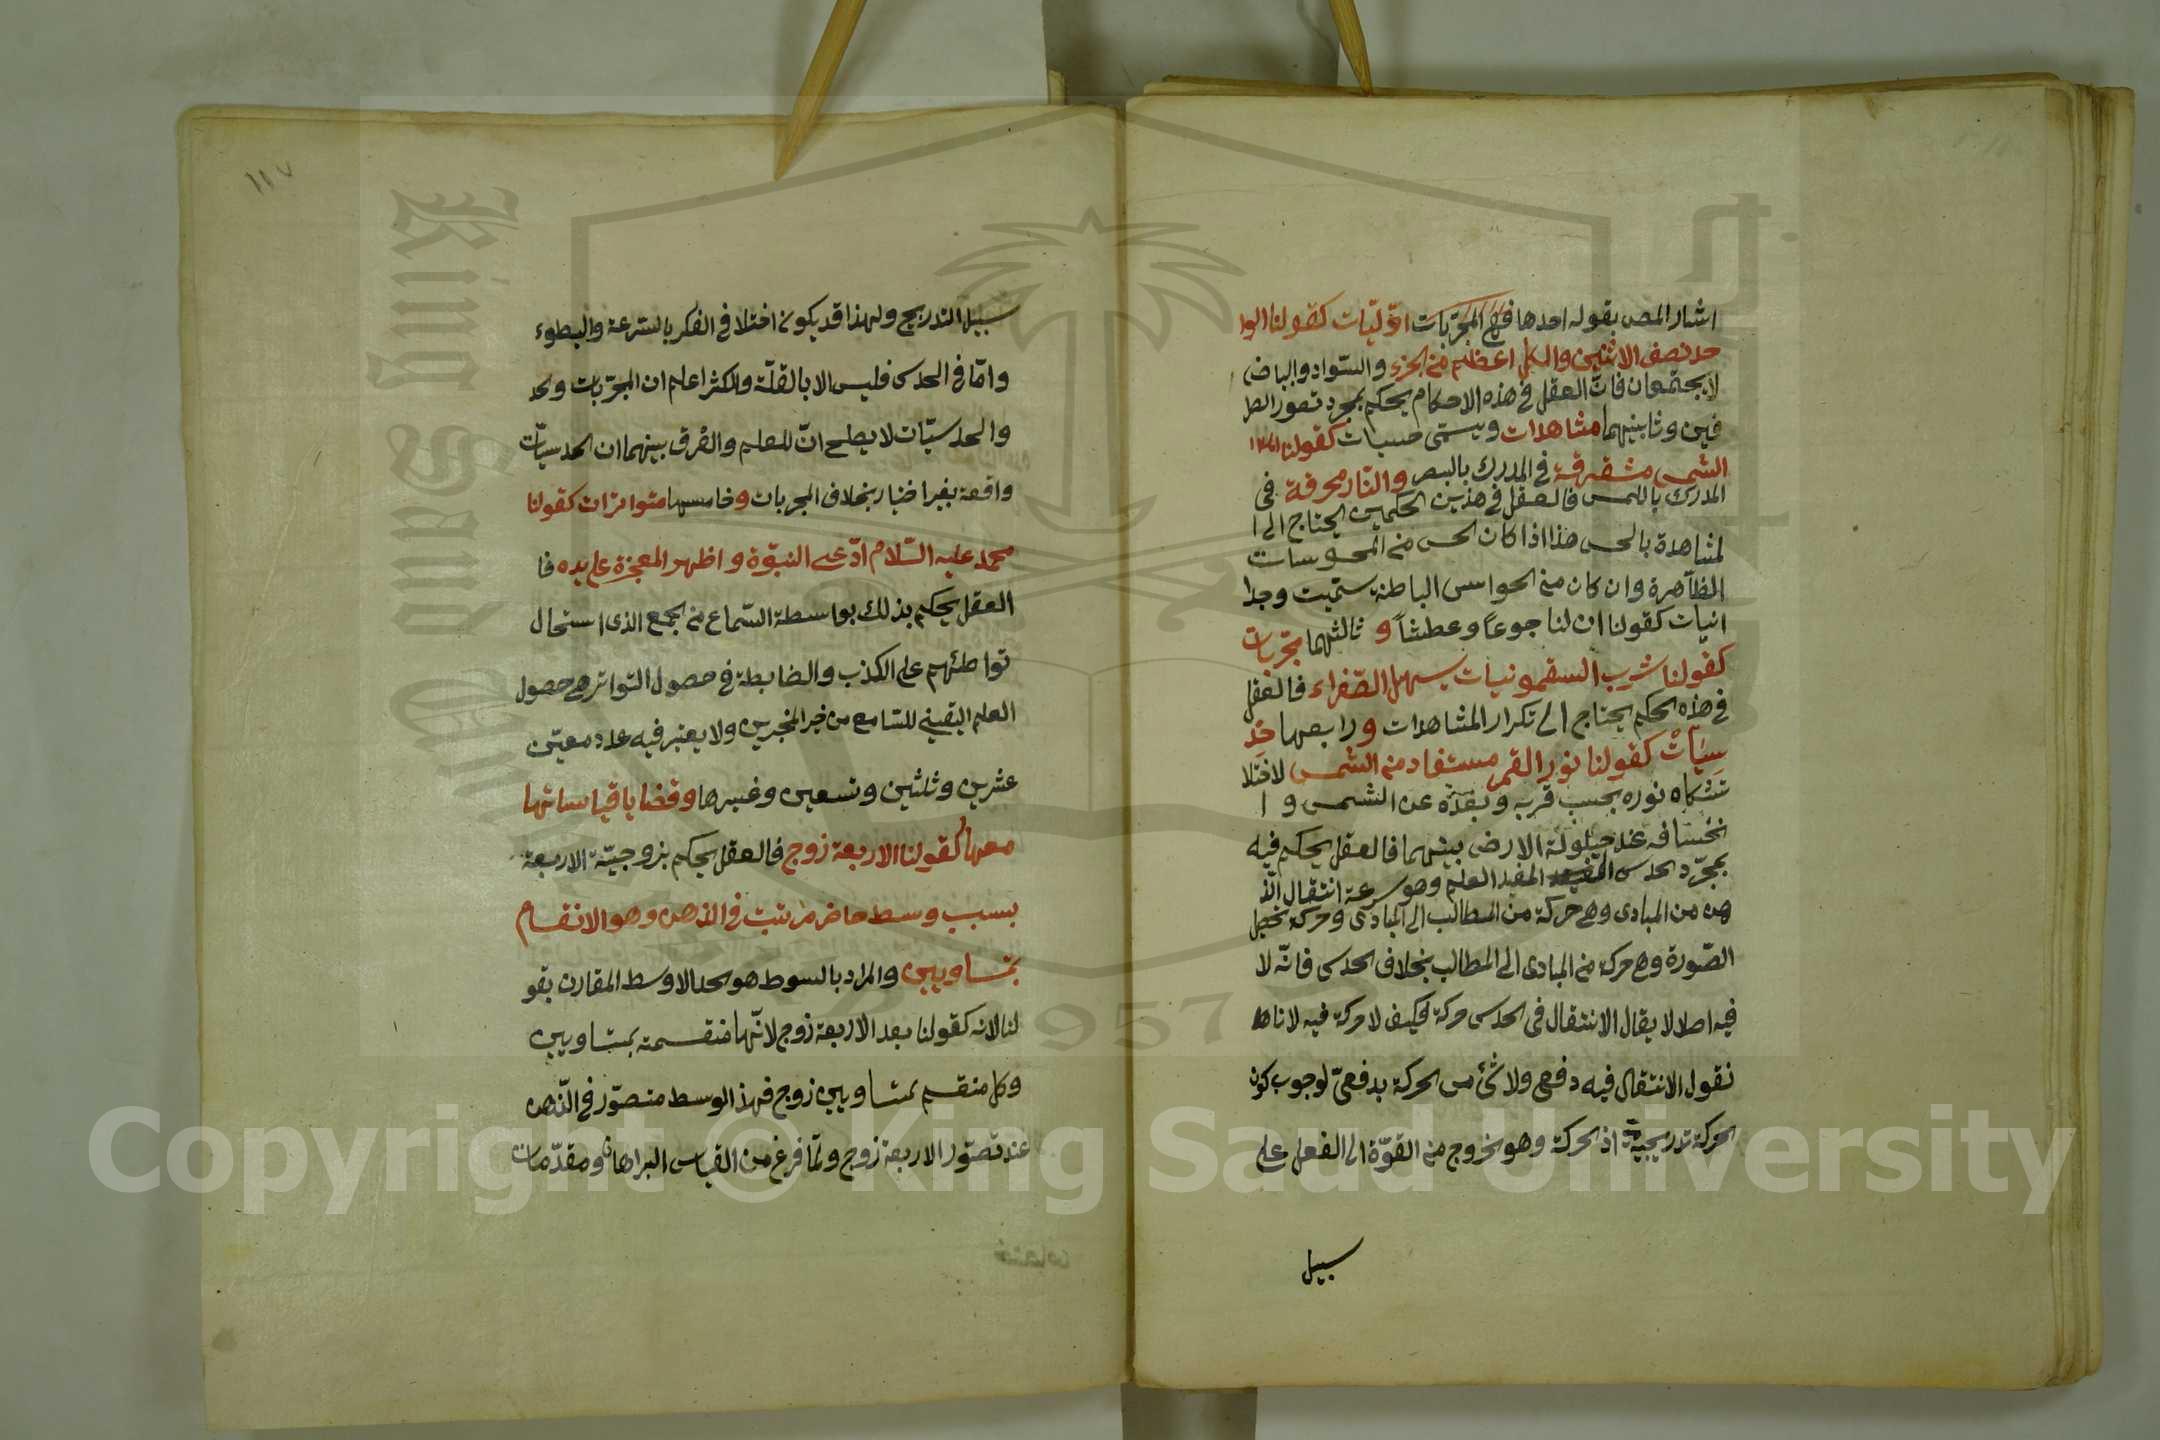 اشار المص بقوله احدها اوّليّات كقولنا الوا
حد نصف الاثنين والكل اعظم من الجزء والسّواد والبياض
لا يجتمعان فانّ العقل في هذه الاحكام يحكم بمجرد تصور الطر
فين وثانيهما مشاهدات ويسمّى حسيات كقولنا
الشمس مشرقة في المدرك بالبصر والنّار محرقة في
المدرك باللمس فالعقل في هذين الحكمين يحتاج الى ا
لمشاهدة بالحس هذا اذا كان الحس من المحسوسات
الظاهرة وان كان من الحواس الباطنة سمّيت وجدا
نيّات كقولنا ان لنا جوعاً وعطشاً و ثالثهما مجرّبات
كقولنا شرب السقمونيات يسهل الصّفراء فالعقل
في هذه الحكم يحتاج الى تكرار المشاهدات ورابعها حد
سيّاتْ كقولنا نور القمر مستفاد من الشمس لاختلا
تشكاه نوره بحسب قربه وبعده عن الشمس و ا
نخسافه عند حيلولة الارض بينهما فالعقل يحكم فيه
بمجرّد الحدس المفيد العلم وهو سرعة انتقال الذ
هن من المبادى وهى حركة من المطالب الى المبادى وحركة
الصّورة وهى حركة من المبادى الى المطالب بخلاف الحدس فانّه لا
فيه اصلا لا يقال الانتقال فى الحدس حركة فكيف لا حركة فيه لانا
نقول الانتقال فيه دفعى ولا شئ من الحركة بدفعىّ لوجوب كون
الحركة تدريجية اذ الحركة وهو خروج من القوّة الى الفعل على
سبيل
١١٧
سبيل التدريج ولهذا قد يكون اختلاف الفكر بالسّرعة والبطوء
وامّا فى الحدس فليس الا بالقلّة والكثر اعلم ان المجرّبات وحد
والحدسيّات لا يصلح انّ للعلم والفرق بينهما ان الحدسيّات
واقعة بغير اختيار بخلاف المجربات وخامسها متواترات كقولنا
محمد عليه السّلام ادّعى النبوّة واظهر المعجزة على يده فا
العقل يحكم بذلك بواسطة السّماع من الجمع الذى استحال
تواطئهم على الكذب والضابطة فى حصول التواتر هى حصول
العلم اليقينى للسّامع من خبر المخبرين ولا يعتبر فيه عدد معيّن
عشرين وثلثين وتسعين وغيرها وقضايا قياساتها
معها كقولنا الاربعة زوج فالعقل يحكم بزوجيّة الاربعة
بسبب وسط حاضر مرتبت فى الذهن وهو الانقسام
بمتساويين والمراد بالسوط هو الحد الاوسط المقارن بقو
لنا لانه كقولنا بعد الاربعة زوج لانّها منقسمة بمتساويين
وكل منقسم بمتساويين زوج فهذا الوسط متصوّر فى الذّهن
عند تصّور الاربعة زوج ولمّا فرغ من القياس البراهان ومقدّمات
Copyright © King Saud University
King Saud University
1957